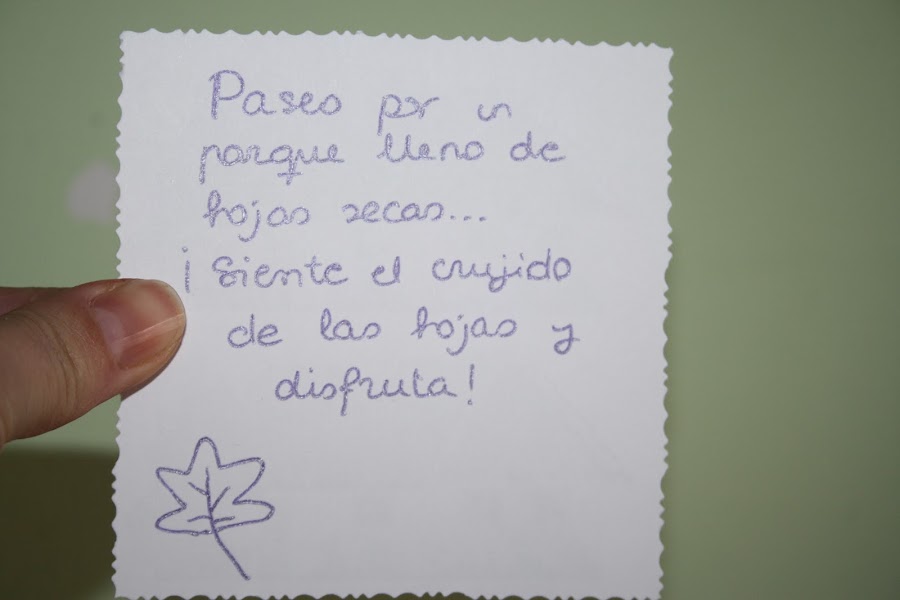 Paseo por un
parque lleno de
hojas secas...
¡Siente el crujido
de las hojas y
disfruta!